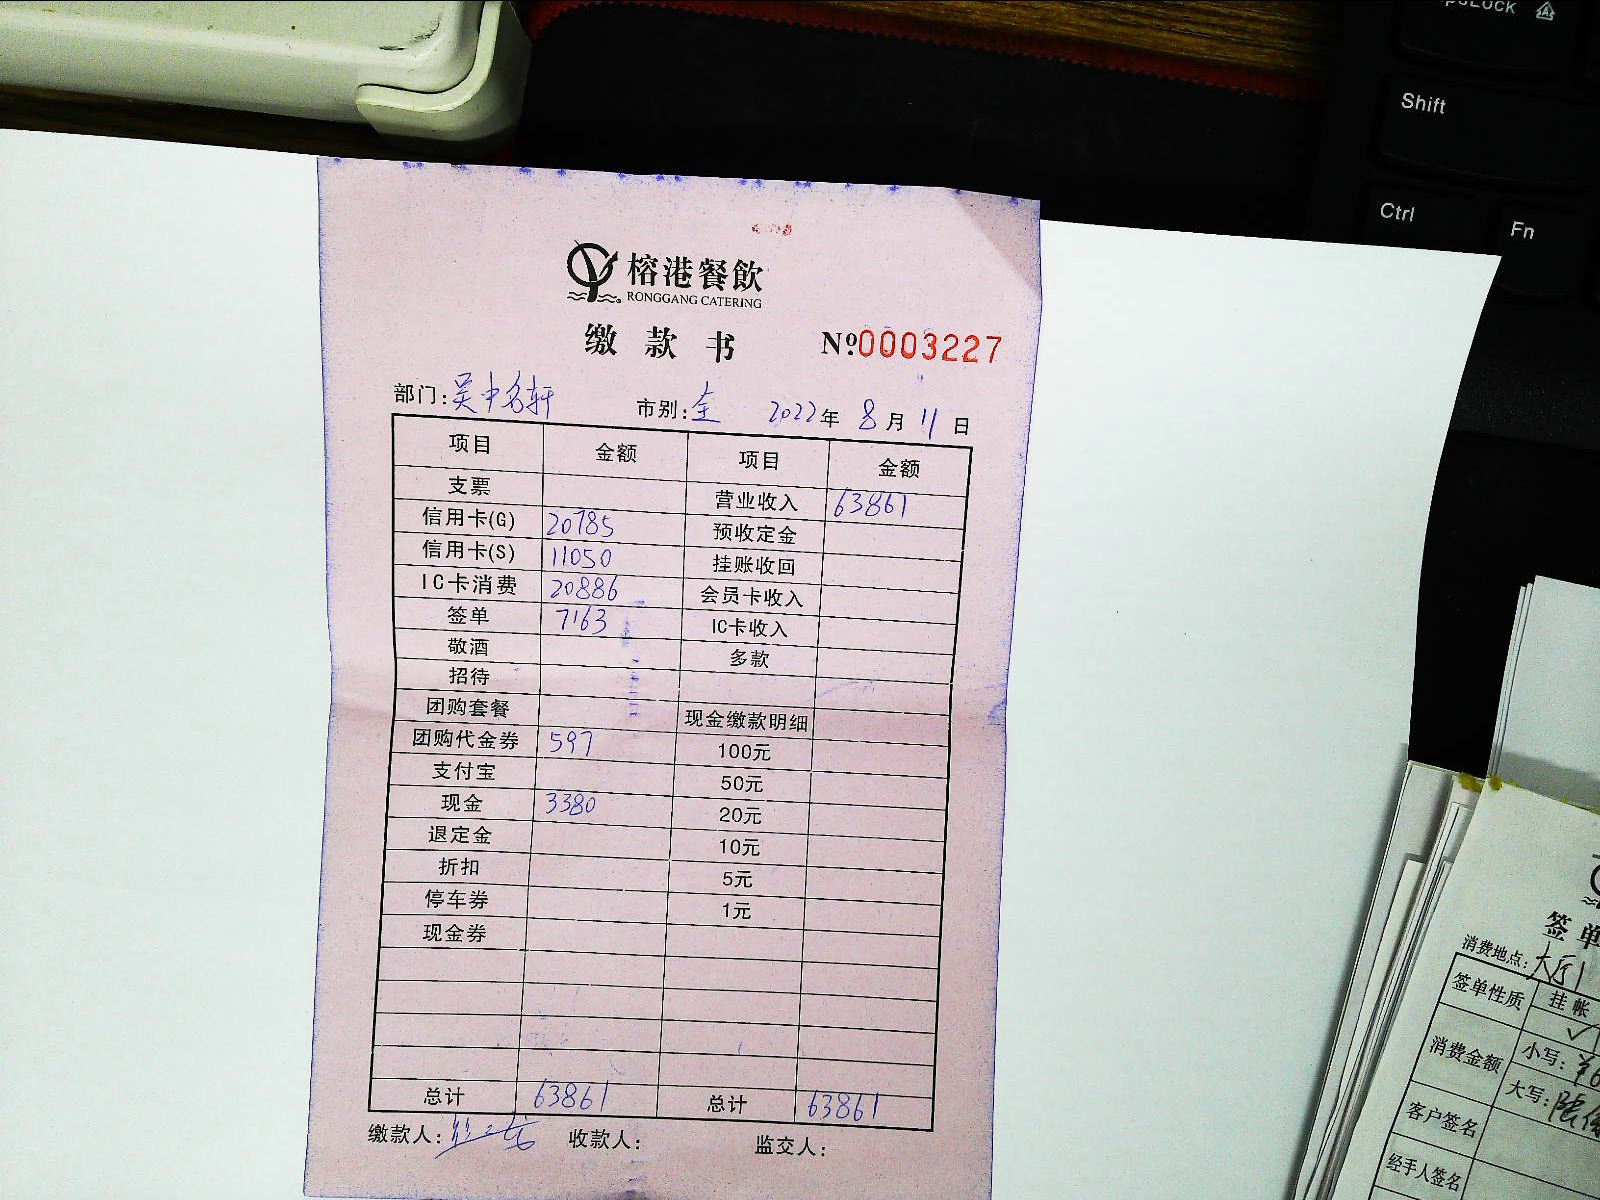 psLock
Shift
Ctrl
Fn
榕港餐飲
RONGGANG CATERING
缴款书 №0003227
部门:吴中名轩 市别:全 2022年8月11日
项目 金额 项目 金额
支票 营业收入 63861
信用卡(G) 20785 预收定金
信用卡(S) 11050 挂账收回
IC卡消费 20886 会员卡收入
签单 7163 IC卡收入
敬酒 多款
招待
团购套餐 现金缴款明细
团购代金券 597 100元
支付宝 50元
现金 3380 20元
退定金 10元
折扣 5元
停车券 1元
现金券
总计 63861 总计 63861
缴款人: 收款人: 监交人:
签单
消费地点:大厅1
签单性质 挂帐
消费金额 小写:¥6
大写:
客户签名
经手人签名